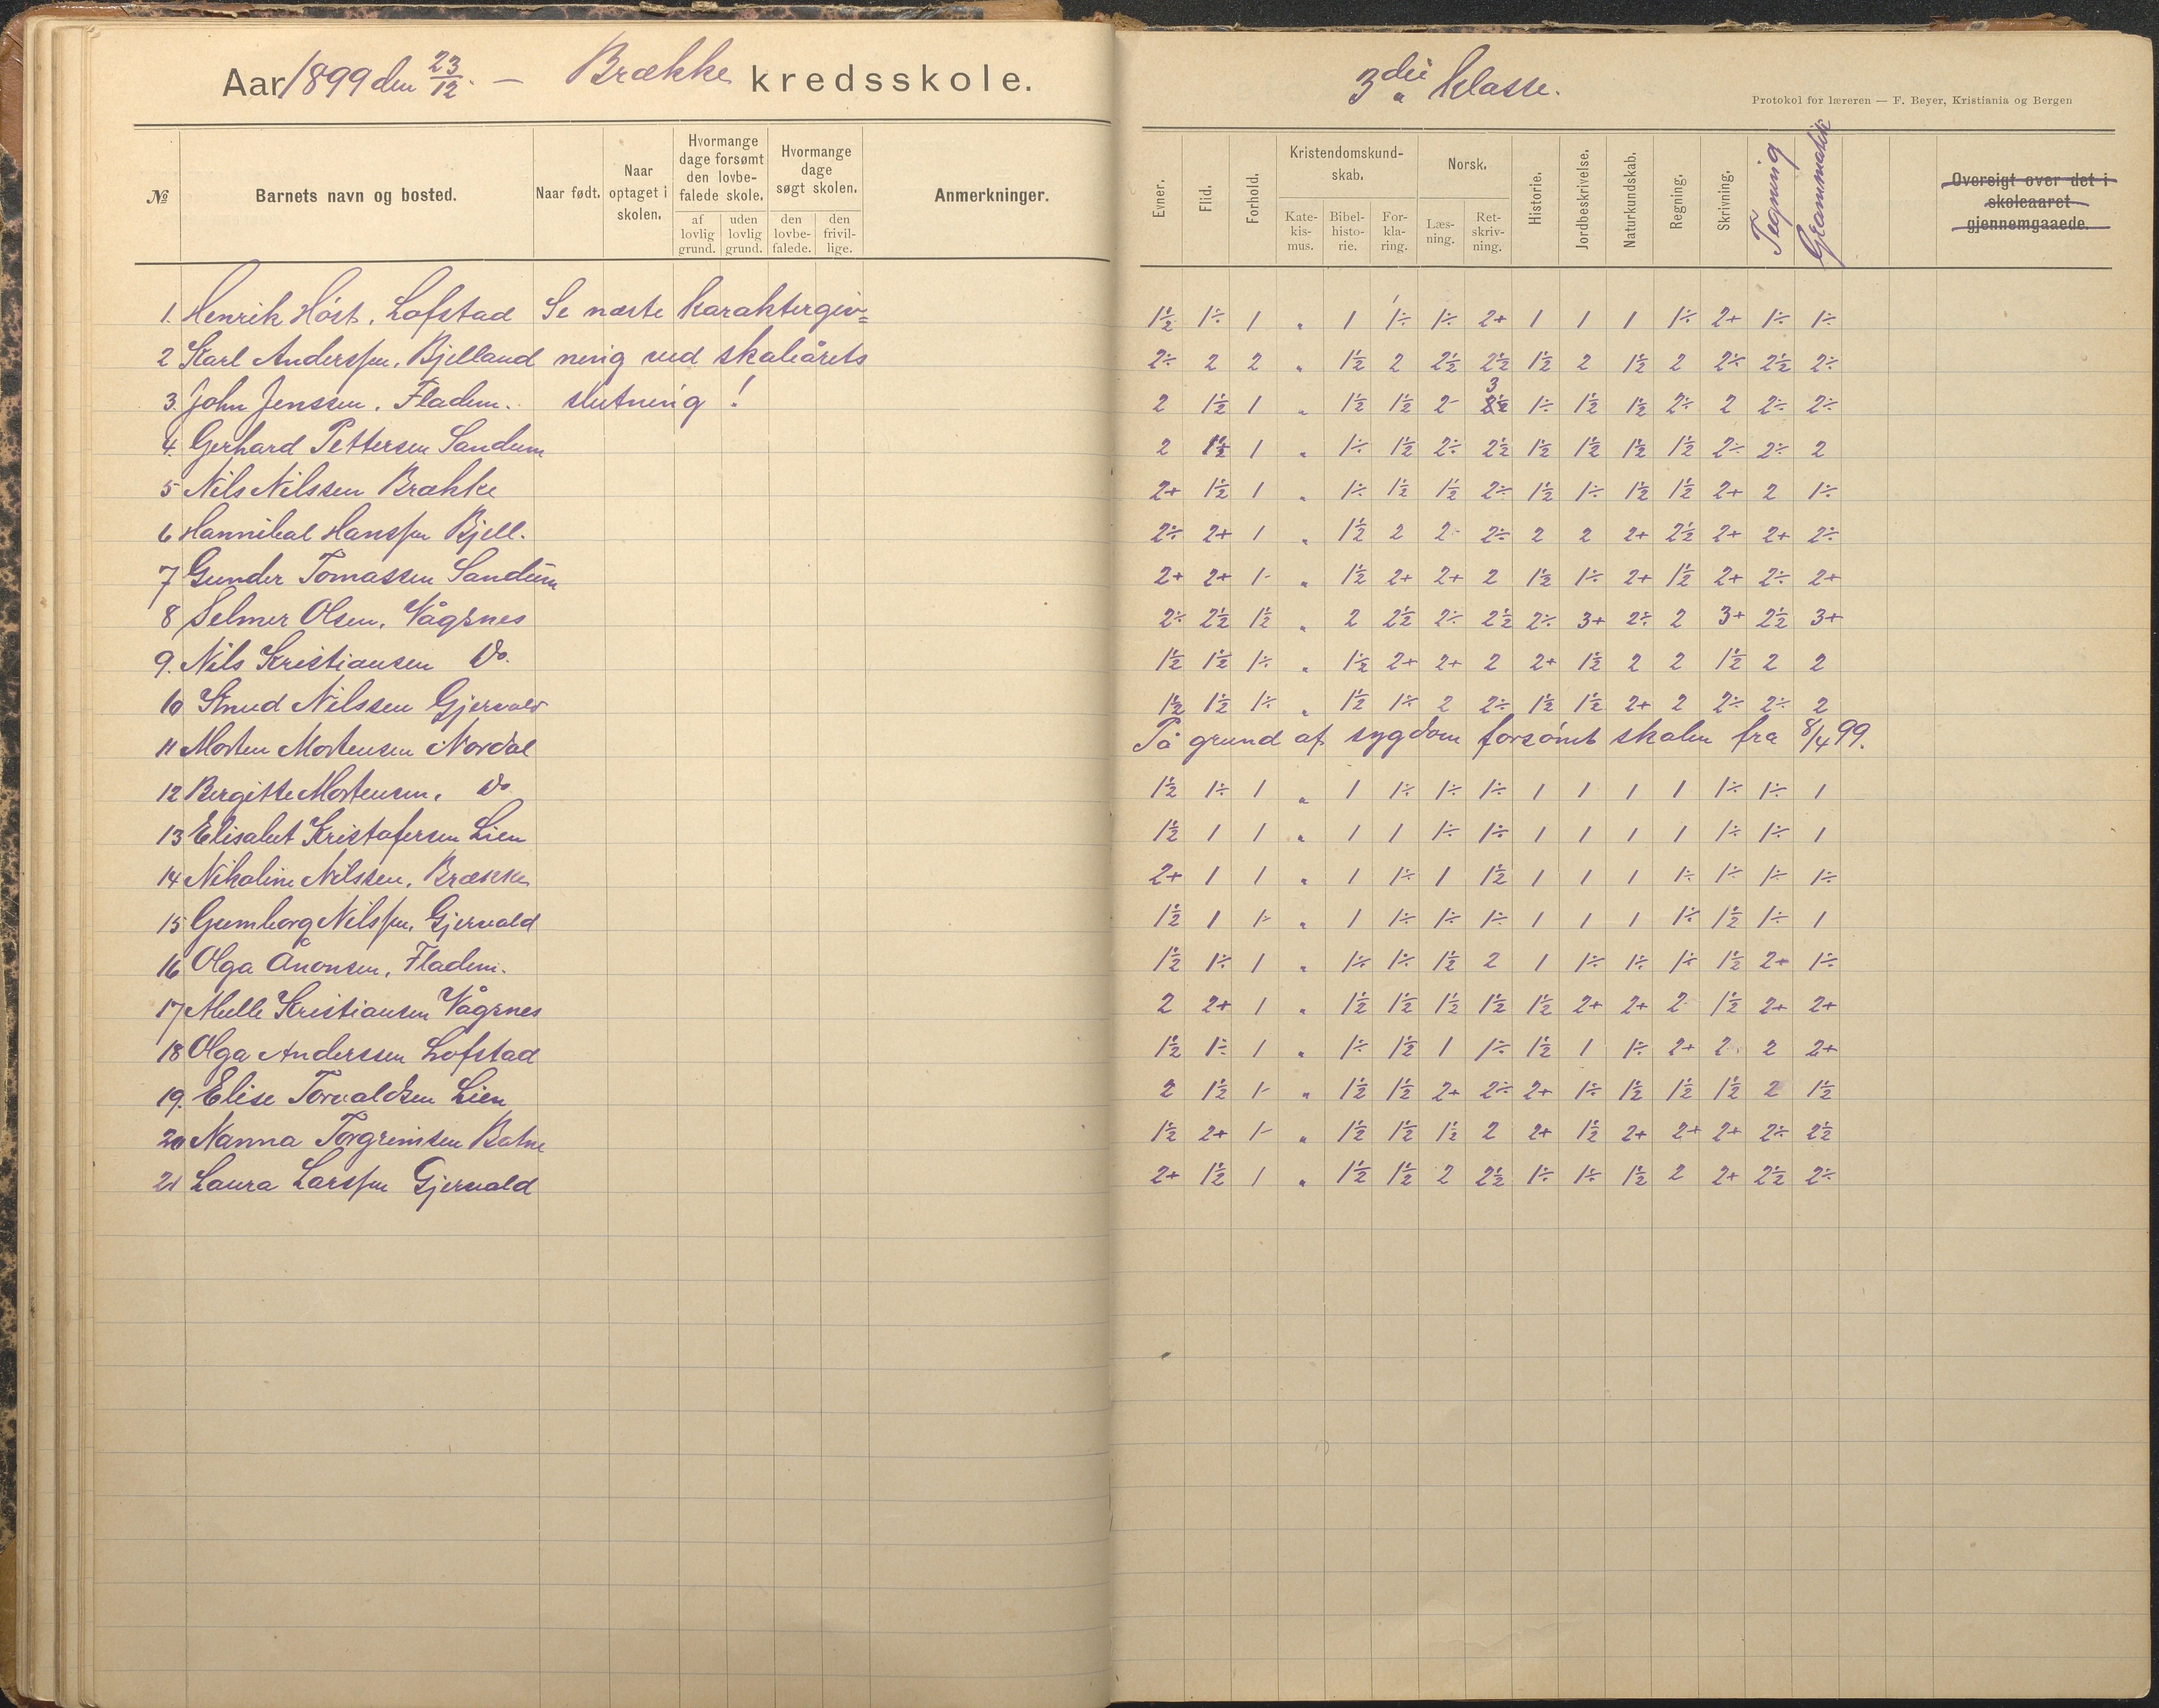 Aar 1899 den 23/12. — Brække kredsskole.
3die klasse.
Protokol for læreren — F. Beyer, Kristiania og Bergen
№ Barnets navn og bosted. Naar født. Naar optaget i skolen. Hvormange dage forsømt den lovbefalede skole. af lovlig grund. uden lovlig grund. Hvormange dage søgt skolen. den lovbefalede. den frivillige. Anmerkninger.
Evner. Flid. Forhold. Kristendomskundskab. Katekismus. Bibelhistorie. Forklaring. Norsk. Læsning. Retskrivning. Historie. Jordbeskrivelse. Naturkundskab. Regning. Skrivning. Tegning Grammatik Oversigt over det i skoleaaret gjennemgaaede.
1. Henrik Höst. Lofstad Se næste karaktergiv= 1½ 1÷ 1 " 1 1÷ 1÷ 2+ 1 1 1 1÷ 2+ 1÷ 1÷
2 Karl Anderssen. Bjelland ning ved skoleårets 2÷ 2 2 " 1½ 2 2½ 2½ 1½ 2 1½ 2 2÷ 2½ 2÷
3. John Jenssen. Fladem. slutning! 2 1½ 1 " 1½ 1½ 2- 3 1÷ 1½ 1½ 2÷ 2 2÷ 2÷
4. Gerhard Pettersen Sandum 2 1½ 1 " 1÷ 1½ 2÷ 2½ 1½ 1½ 1½ 1½ 2÷ 2÷ 2
5 Nils Nilssen Brække 2+ 1½ 1 " 1÷ 1½ 1½ 2÷ 1½ 1÷ 1½ 1½ 2+ 2 1÷
6 Hannibal Hanssen Bjell. 2÷ 2+ 1 " 1½ 2 2- 2÷ 2 2 2+ 2½ 2+ 2+ 2÷
7 Gunder Tomassen Sandum 2+ 2+ 1- " 1½ 2+ 2+ 2 1½ 1÷ 2+ 1½ 2+ 2÷ 2+
8 Selmer Olsen. Vågsnes 2÷ 2½ 1½ " 2 2½ 2÷ 2½ 2÷ 3+ 2÷ 2 3+ 2½ 3+
9. Nils Kristiansen Do. 1½ 1½ 1÷ " 1½ 2+ 2+ 2 2+ 1½ 2 2 1½ 2 2
10 Knud Nilssen Gjervald 1½ 1½ 1÷ " 1½ 1÷ 2 2÷ 1½ 1½ 2+ 2 2÷ 2÷ 2
11 Morten Mortensen Nordal På grund af sygdom forsömt skolen fra 8/4 99.
12 Bergitte Mortensen. Do. 1½ 1÷ 1 " 1 1÷ 1÷ 1÷ 1 1 1 1 1÷ 1÷ 1
13 Elisabet Kristofersen Lien 1½ 1 1 " 1 1 1÷ 1÷ 1 1 1 1 1÷ 1÷ 1
14 Nikoline Nilssen. Brække 2+ 1 1 " 1 1÷ 1 1½ 1 1 1 1÷ 1÷ 1÷ 1÷
15 Gumborg Nilssen. Gjervald 1½ 1 1- " 1 1÷ 1÷ 1÷ 1 1 1 1÷ 1½ 1÷ 1
16 Olga Ånonsen. Fladem. 1½ 1÷ 1 " 1÷ 1÷ 1½ 2 1 1÷ 1÷ 1÷ 1½ 2+ 1÷
17 Mulle Kristiansen Vågsnes 2 2+ 1 " 1½ 1½ 1½ 1½ 1½ 2+ 2+ 2 1½ 2+ 2+
18 Olga Anderssen Lofstad 1½ 1÷ 1 " 1÷ 1½ 1 1÷ 1½ 1 1÷ 2+ 2 2 2+
19. Elise Torvaldsen Lien 2 1½ 1- " 1½ 1½ 2+ 2÷ 2+ 1÷ 1½ 1½ 1½ 2 1½
20 Nanna Torgrimsen Botne 1½ 2+ 1- " 1½ 1½ 1½ 2 2+ 1½ 2+ 2+ 2+ 2÷ 2½
21 Laura Larssen Gjervald 2+ 1½ 1 " 1½ 1½ 2 2½ 1÷ 1÷ 1½ 2 2+ 2½ 2÷